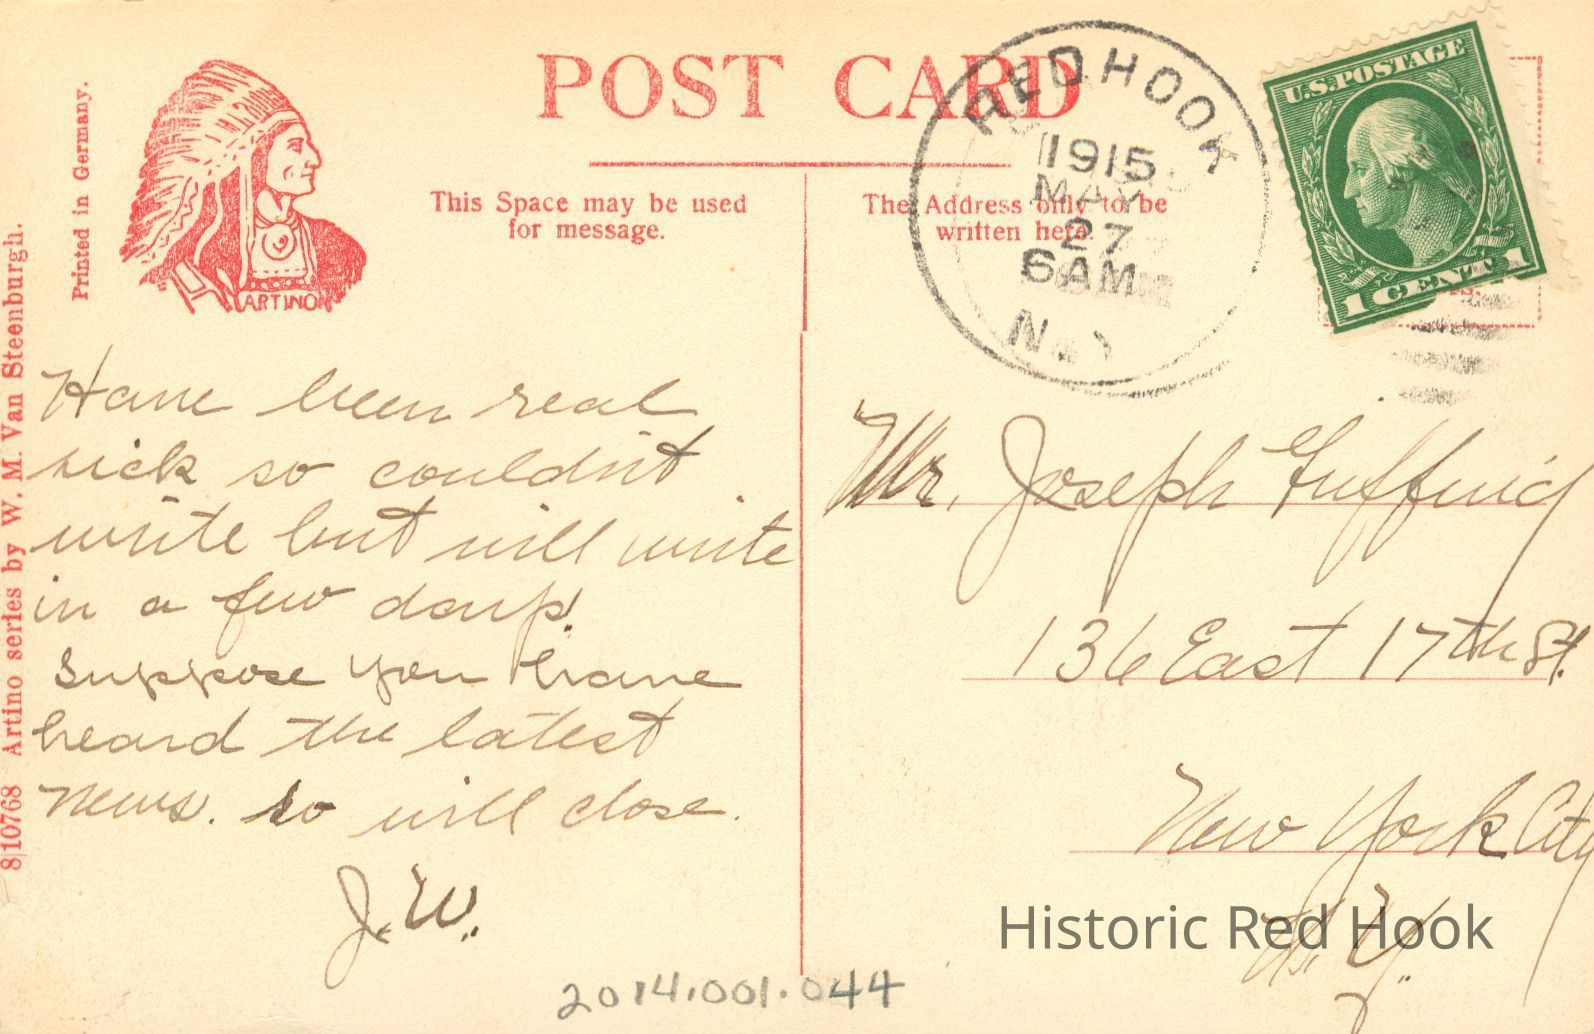 POST CARD
Printed in Germany.
ARTINO
8|10768 Artino series by W. M. Van Steenburgh.
This Space may be used
for message.
The Address only to be
written here.
RED HOOK
1915
MAY
27
6AM
N.Y.
U.S. POSTAGE
1 CENT 1
Have been real
sick so couldn't
write but will write
in a few days.
Suppose you have
heard the latest
news. so will close.
J.W.
Mr. Joseph
136 East 17th St.
New York City
N.Y.
Historic Red Hook
2014.001.044